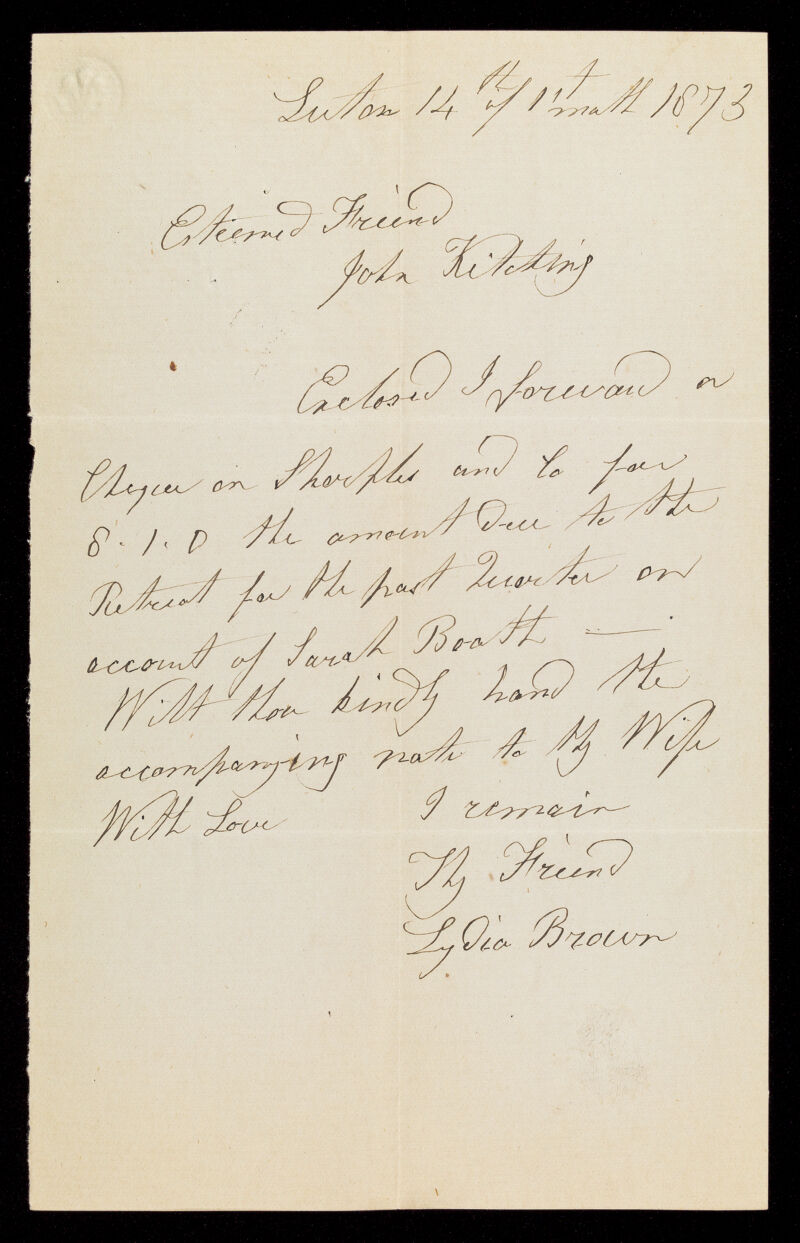 Luton 14th of 1st month 1873
Esteemed Friend
John Kitching
Enclosed I forward a
Cheque on Sharples and Co for
8.1.0 the amount due to the
Retreat for the past Quarter on
account of Sarah Booth —.
Wilt thou kindly hand the
accompanying note to thy Wife
With Love I remain
Thy Friend
Lydia Brown